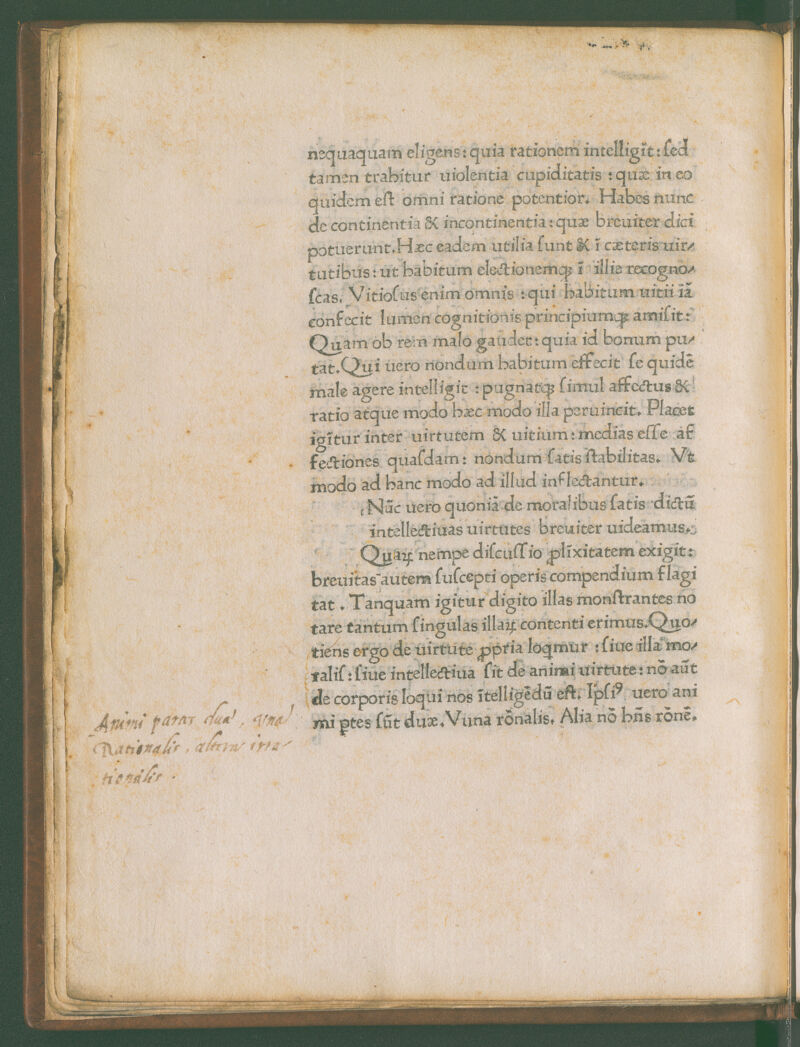 nequaquam eligens: quia rationem intelligit: ſed
tamen trahitur uiolentia cupiditatis : quæ in eo
quidem eſt omni ratione potentior. Habes nunc
de continentia & incontinentia: quæ breuiter dici
potuerunt. Hæc eadem utilia ſunt & ī cæteris uir⸗
tutibus: ut habitum electionemqꝫ ī illis recogno⸗
ſcas. Vitioſus enim omnis : qui habitum uitii iā
confecit lumen cognitionis principiumqꝫ amiſit:
Quam ob rem malo gaudet: quia id bonum pu⸗
tat. Qui uero nondum habitum effecit ſe quidē
male agere intelligit : pugnatqꝫ ſimul affectus &
ratio atque modo hæc modo illa peruincit. Placet
igitur inter uirtutem & uitium: medias eſſe af
fectiones quaſdam: nondum ſatis ſtabilitas. Vt
modo ad hanc modo ad illud inflectantur.
Nūc uero quoniā de moralibus ſatis dictū
intellectiuas uirtutes breuiter uideamus.
Quaꝝ nempe diſcuſſio ꝓlixitatem exigit:
breuitas autem ſuſcepti operis compendium flagi
tat . Tanquam igitur digito illas monſtrantes no
tare tantum ſingulas illaꝝ contenti erimus. Quo⸗
tiens ergo de uirtute ꝓpria loqmur : ſiue illa mo⸗
raliſ: ſiue intellectiua ſit de animi uirtute: nō aūt
de corporis loqui nos ītelligēdū eſt. Ipſiꝰ uero ani
mi ꝑtes ſūt duæ. Vuna rōnalis. Alia nō hñs rōnē.
Animi partes duæ, una
Rationalis, altera irra
tionalis .